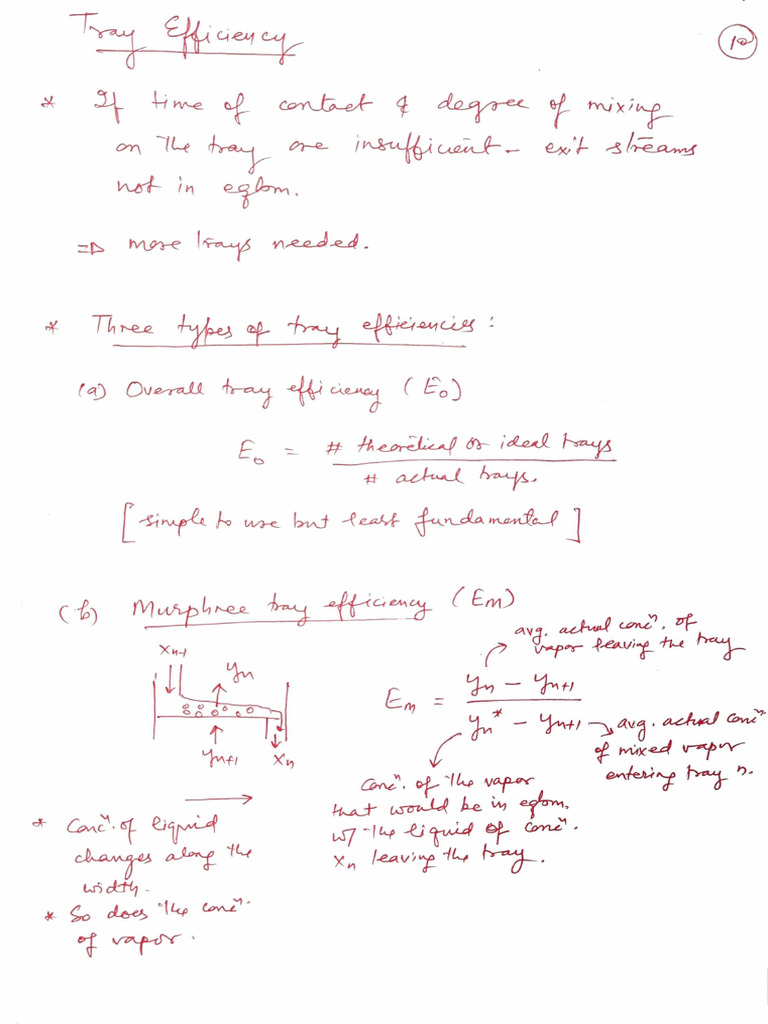 Tray Efficiency
10
* If time of contact & degree of mixing
on the tray are insufficient - exit streams
not in eqbm.
⇒ more trays needed.
* Three types of tray efficiencies :
(a) Overall tray efficiency (E₀)
E₀ = # theoretical or ideal trays / # actual trays.
[simple to use but least fundamental]
(b) Murphree tray efficiency (Em)
xₙ₋₁
yₙ
yₙ₊₁
xₙ
Em = (yₙ - yₙ₊₁) / (yₙ* - yₙ₊₁)
avg. actual concⁿ. of
vapor leaving the tray
avg. actual concⁿ.
of mixed vapor
entering tray n.
concⁿ. of the vapor
that would be in eqbm.
w/ the liquid of concⁿ.
xₙ leaving the tray.
* Concⁿ. of liquid
changes along the
width.
* So does the concⁿ.
of vapor.